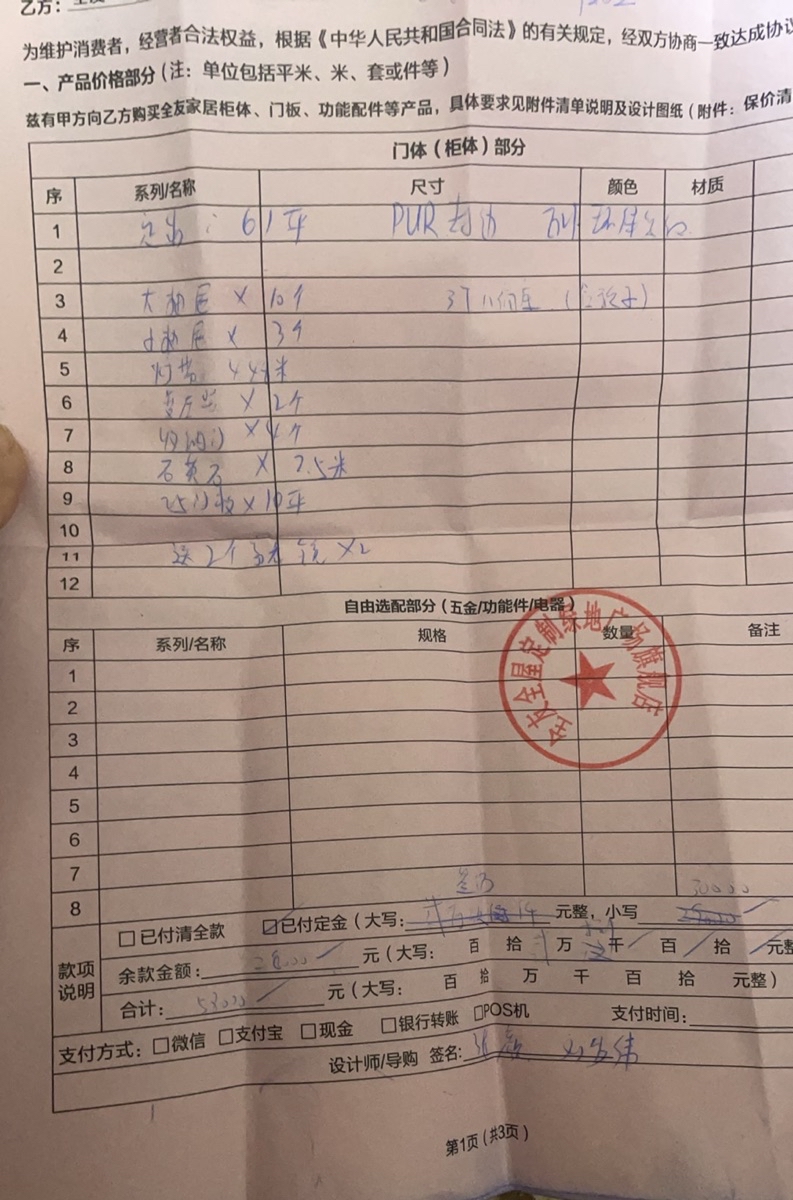 乙方：
为维护消费者，经营者合法权益，根据《中华人民共和国合同法》的有关规定，经双方协商一致达成协议
一、产品价格部分（注：单位包括平米、米、套或件等）
兹有甲方向乙方购买全友家居柜体、门板、功能配件等产品，具体要求见附件清单说明及设计图纸（附件：保价清
门体（柜体）部分
序 系列/名称 尺寸 颜色 材质
1 61平 PUR封边
2
3 大抽屉 × 10个
4 小抽屉 × 3个
5 灯带 44米
6 变压器 × 2个
7 ×4个
8 石英石 × 7.5米
9 25门板×10平
10
11 送2个 镜 ×2
12
自由选配部分（五金/功能件/电器）
序 系列/名称 规格 数量 备注
1
2
3
4
5
6
7
8
全友全屋定制绿地广场旗舰店
叁万 30000
款项说明
□已付清全款 ☑已付定金（大写： 元整，小写
余款金额：28000 元（大写： 百 拾 万 千 百 拾 元整
合计：58000 元（大写： 百 拾 万 千 百 拾 元整）
支付方式：□微信 □支付宝 □现金 □银行转账 □POS机 支付时间：
设计师/导购 签名：
第1页（共3页）